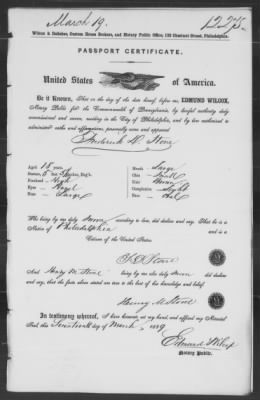 March 19.
1225.
Wilcox & Dutcher, Custom House Brokers, and Notary Public Office, 138 Chestnut Street, Philadelphia.
PASSPORT CERTIFICATE.
United States of America.
Be it Known, That on the day of the date hereof, before me, EDMUND WILCOX,
Notary Public for the Commonwealth of Pennsylvania, by lawful authority duly
commissioned and sworn, residing in the City of Philadelphia, and by law authorized to
administer oaths and affirmations, personally came and appeared
Frederick D. Stone
Age 18 years, Mouth Large
Stature 5 feet inches, Eng'h. Chin Small
Forehead High Hair Brown
Eyes Hazel Complexion Light
Nose Large Face Oval
Who being by me duly Sworn according to law, did declare and say, That he is a
Native of Philadelphia
Citizen of the United States.
F D Stone
And Henry M. Stone being by me also duly Sworn did declare and
say, that the facts above stated are true to the best of his knowledge and belief.
Henry M Stone
In testimony whereof, I have hereunto set my hand, and affixed my Notarial
Seal, this Seventeenth day of March 1859
Edmund Wilcox
Notary Public.